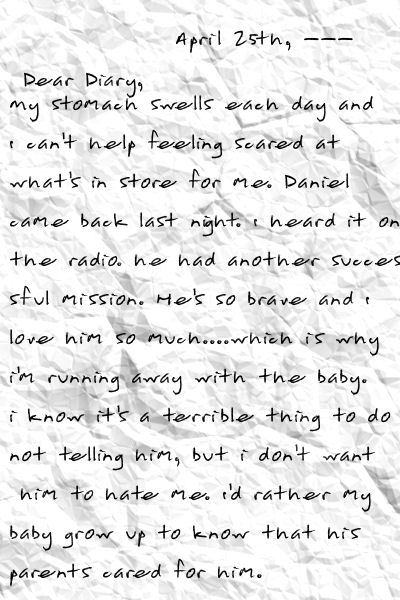 April 25th, ---
Dear Diary,
my stomach swells each day and
i can't help feeling scared at
what's in store for me. Daniel
came back last night. i heard it on
the radio. he had another succes
sful mission. He's so brave and i
love him so much....which is why
i'm running away with the baby.
i know it's a terrible thing to do
not telling him, but i don't want
him to hate me. i'd rather my
baby grow up to know that his
parents cared for him.